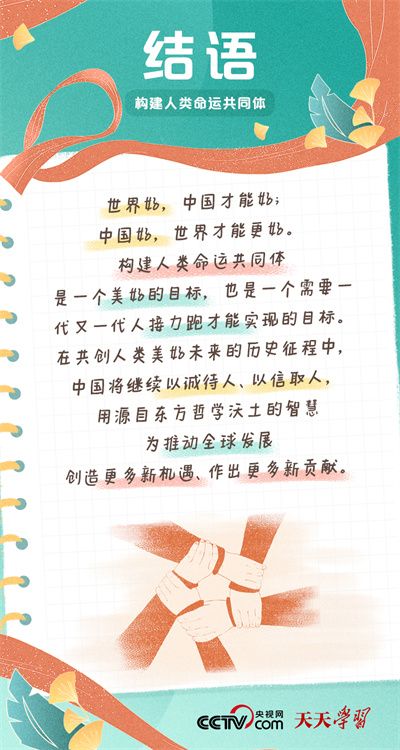 结语
构建人类命运共同体
世界好，中国才能好；
中国好，世界才能更好。
构建人类命运共同体
是一个美好的目标，也是一个需要一
代又一代人接力跑才能实现的目标。
在共创人类美好未来的历史征程中，
中国将继续以诚待人、以信取人，
用源自东方哲学沃土的智慧
为推动全球发展
创造更多新机遇、作出更多新贡献。
CCTV.com 央视网 天天学習